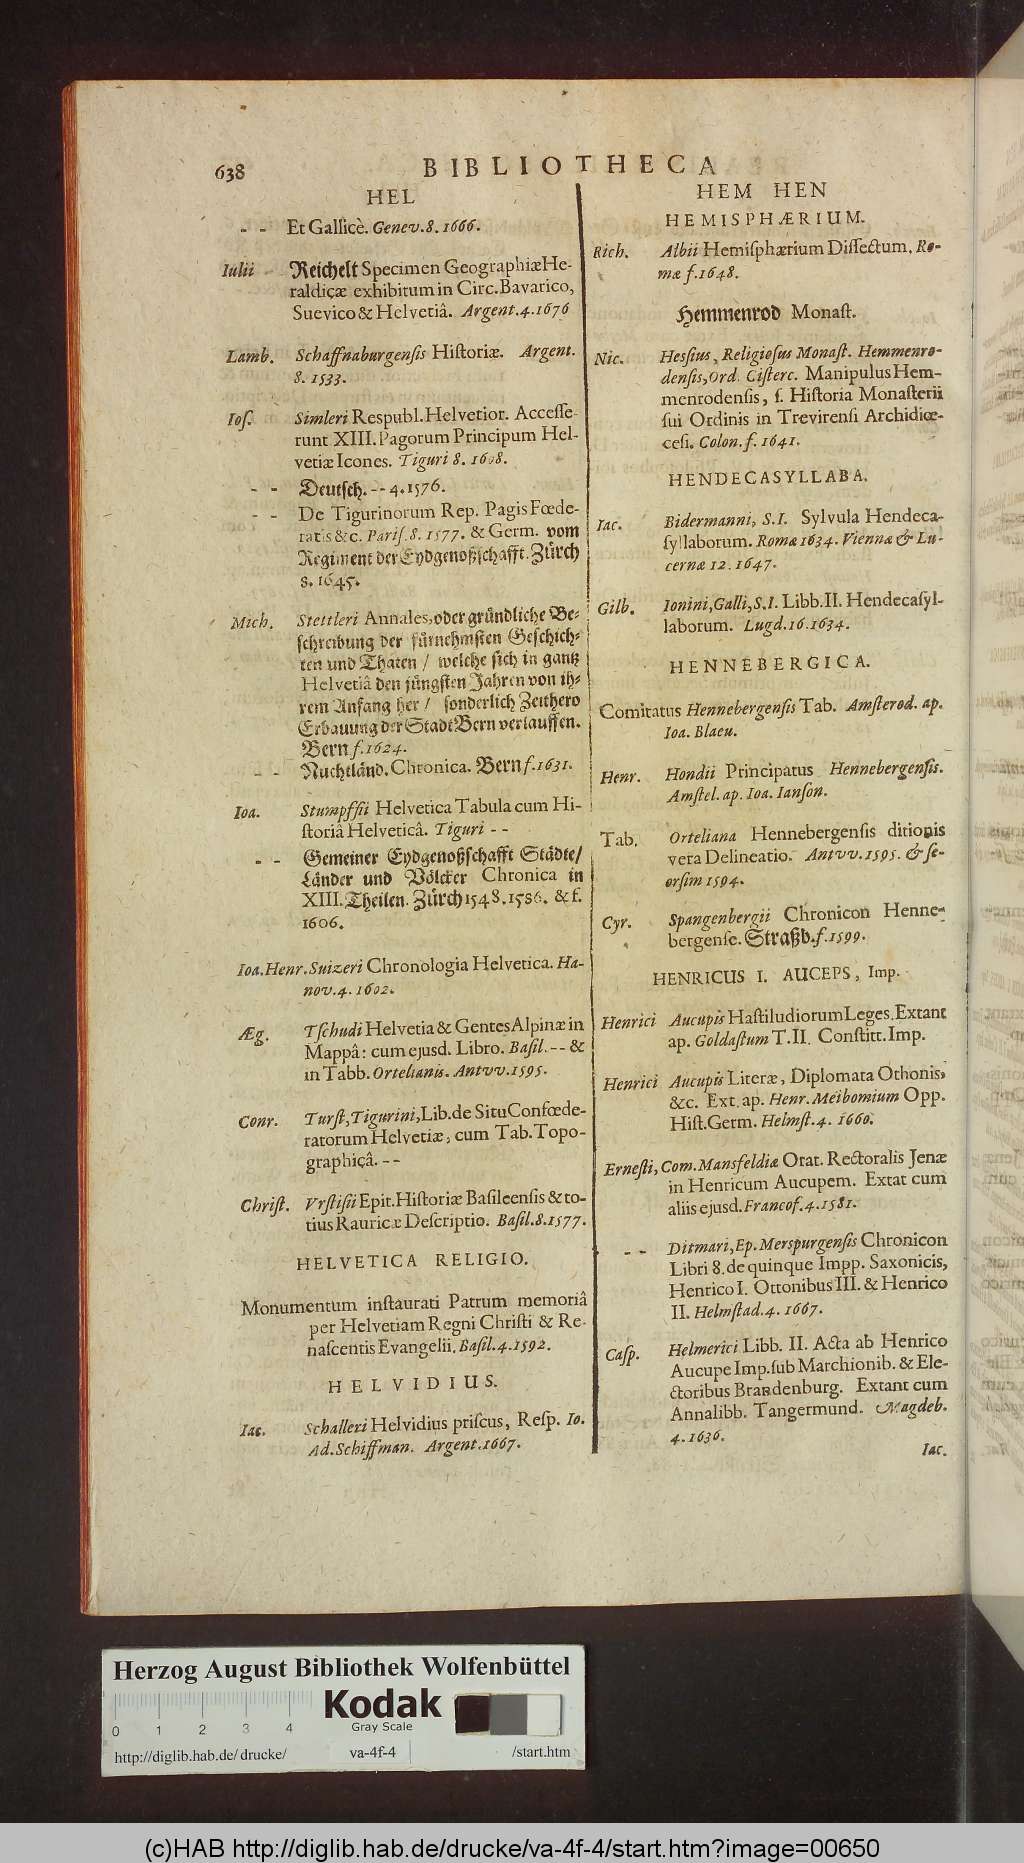 638
BIBLIOTHECA
HEL
- - Et Gallicè. Genev. 8. 1666.
Iulii Reichelt Specimen Geographiæ He-
raldicæ exhibitum in Circ. Bavarico,
Suevico & Helvetiâ. Argent. 4. 1676
Lamb. Schaffnaburgensis Historiæ. Argent.
8. 1533.
Ios. Simleri Respubl. Helvetior. Accesse-
runt XIII. Pagorum Principum Hel-
vetiæ Icones. Tiguri 8. 1608.
- - Deutsch. -- 4. 1576.
- - De Tigurinorum Rep. Pagis Fœde-
ratis &c. Paris. 8. 1577. & Germ. vom
Regiment der Eydgenoßschafft. Zürch
8. 1645.
Mich. Stettleri Annales, oder gründliche Be-
schreibung der fürnehmsten Geschich-
ten und Thaten / welche sich in gantz
Helvetiâ den jüngsten Jahren von ih-
rem Anfang her / sonderlich Zeithero
Erbauung der Stadt Bern verlauffen.
Bern f. 1624.
- - Nuchtländ. Chronica. Bern f. 1631.
Ioa. Stumpfsii Helvetica Tabula cum Hi-
storiâ Helveticâ. Tiguri --
- - Gemeiner Eydgenoßschafft Städte/
Länder und Völcker Chronica in
XIII. Theilen. Zürch 1548. 1586. & f.
1606.
Ioa. Henr. Suizeri Chronologia Helvetica. Ha-
nov. 4. 1602.
Æg. Tschudi Helvetia & Gentes Alpinæ in
Mappâ: cum ejusd. Libro. Basil. -- &
in Tabb. Ortelianis. Antvv. 1595.
Conr. Turst, Tigurini, Lib. de Situ Confœde-
ratorum Helvetiæ, cum Tab. Topo-
graphicâ. --
Christ. Vrstisii Epit. Historiæ Basileensis & to-
tius Rauricæ Descriptio. Basil. 8. 1577.
HELVETICA RELIGIO.
Monumentum instaurati Patrum memoriâ
per Helvetiam Regni Christi & Re-
nascentis Evangelii. Basil. 4. 1592.
HELVIDIUS.
Iac. Schalleri Helvidius priscus, Resp. Io.
Ad. Schiffman. Argent. 1667.
HEM HEN
HEMISPHÆRIUM.
Rich. Albii Hemisphærium Dissectum. Ro-
mæ f. 1648.
Hemmenrod Monast.
Nic. Hesius, Religiosus Monast. Hemmenro-
densis, Ord. Cisterc. Manipulus Hem-
menrodensis, s. Historia Monasterii
sui Ordinis in Trevirensi Archidiœ-
cesi. Colon. f. 1641.
HENDECASYLLABA.
Iac. Bidermanni, S.I. Sylvula Hendeca-
syllaborum. Romæ 1634. Viennæ & Lu-
cernæ 12. 1647.
Gilb. Ionini, Galli, S.I. Libb. II. Hendecasyl-
laborum. Lugd. 16. 1634.
HENNEBERGICA.
Comitatus Hennebergensis Tab. Amsterod. ap.
Ioa. Blaeu.
Henr. Hondii Principatus Hennebergensis.
Amstel. ap. Ioa. Ianson.
Tab. Orteliana Hennebergensis ditionis
vera Delineatio. Antvv. 1595. & se-
orsim 1594.
Cyr. Spangenbergii Chronicon Henne-
bergense. Straßb. f. 1599.
HENRICUS I. AUCEPS, Imp.
Henrici Aucupis Hastiludiorum Leges. Extant
ap. Goldastum T. II. Constitt. Imp.
Henrici Aucupis Literæ, Diplomata Othonis,
&c. Ext. ap. Henr. Meibomium Opp.
Hist. Germ. Helmst. 4. 1660.
Ernesti, Com. Mansfeldiæ Orat. Rectoralis Jenæ
in Henricum Aucupem. Extat cum
aliis ejusd. Francof. 4. 1581.
- - Ditmari, Ep. Merspurgensis Chronicon
Libri 8. de quinque Impp. Saxonicis,
Henrico I. Ottonibus III. & Henrico
II. Helmstad. 4. 1667.
Casp. Helmerici Libb. II. Acta ab Henrico
Aucupe Imp. sub Marchionib. & Ele-
ctoribus Brandenburg. Extant cum
Annalibb. Tangermund. Magdeb.
4. 1636.
Iac.
Herzog August Bibliothek Wolfenbüttel
Kodak
Gray Scale
0 1 2 3 4
http://diglib.hab.de/drucke/ va-4f-4 /start.htm
(c)HAB http://diglib.hab.de/drucke/va-4f-4/start.htm?image=00650